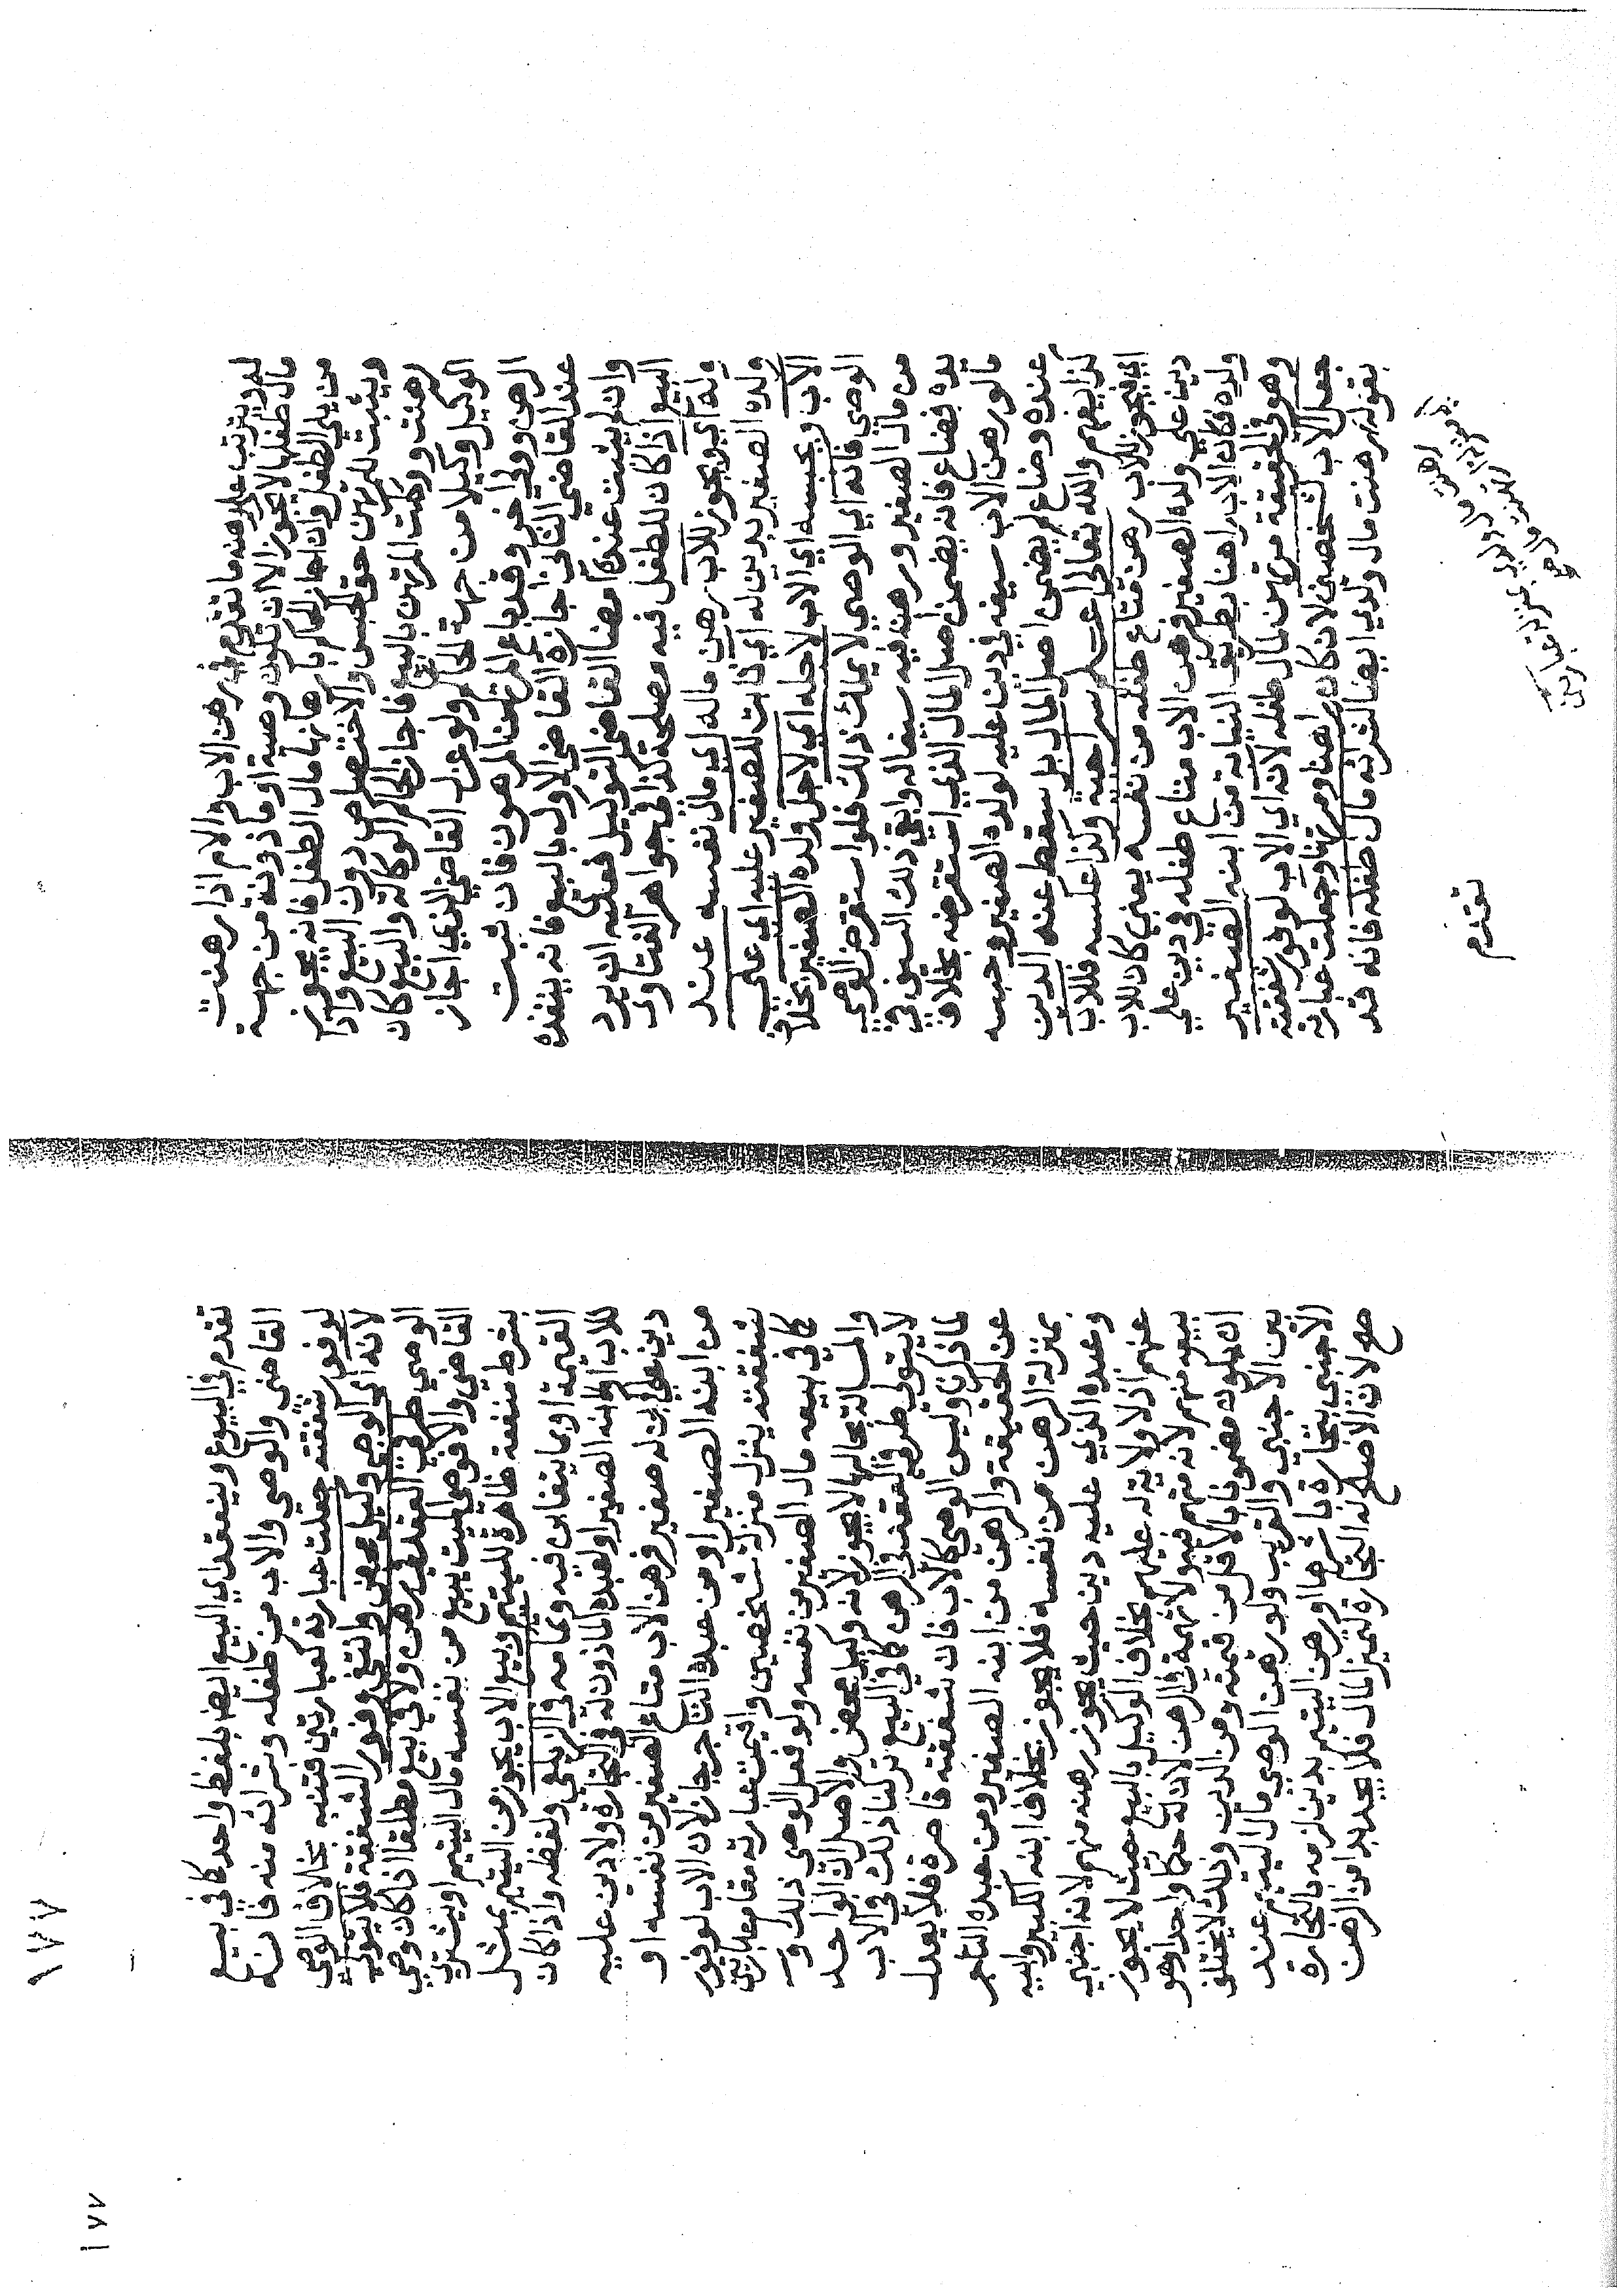 له ويترتب عليه منه ما تقدم في رهن الاب والام اذا رهنت
مال طفلها لا يجوز الا ان تكون وصية او مأذونة من جهة
من يلي الطفل وان اجاز الحاكم بارهانها مال الطفل فانه يجوز
ويثبت للمرتهن حق الحبس والاختصاص دون البيع واذا
رهنت ووكلت المرتهن بالبيع فاجاز الحاكم الوكالة والبيع كان
الوكيل وكيلا من جهة الحاكم ولو عزل القاضي الذي اجاز
الرهن وولي اخر وقد باع المرتهن المرهون فان ثبت
عند القاضي الثاني اجازة القاضي الاول بالبيع فانه ينفذه
وان لم يثبت عنده امضا القاضي التوكيل فعليه ان يرد
البيع اذا كان للطفل فيه مصلحة كذا في جواهر الفتاوى
وله اي ويجوز للاب رهن ماله اي مال نفسه عند
ولده الصغير بدين له اي ثابت للصغير عليه اي على
الاب ويحبسه اي الاب لاجله اي لاجل ولده الصغير بخلاف
الوصي فانه اي الوصي لا يملك ذلك فلو استقرض الوصي
من مال الصغير ورهن فيه سيفا له وابقى ذلك السيف في
يده فضاع فانه يضمن اصل المال الذي استقرضه بخلاف
ما لو رهن الاب سيفه في دين عليه لولده الصغير وحبسه
عنده وضاع لم يضمن اصل المال بل سقط عنه الدين
كذا يفهم والله تعالى اعلم سراجية وكذا عكسه فللاب
اي فيجوز للاب رهن متاع طفله من نفسه يعني كان للاب
دين على ولده الصغير فرهن الاب متاع طفله في دين على
ولده فكان الاب راهنا بطريق النيابة من ابنه الصغير
وهو في الحقيقة مرتهن لمال طفله لانه اي الاب لوفور شفقته
جعل الاب كشخصين لانه كان راهنا ومرتهنا وجعلت عبارته
بقوله رهنت مال ولدي ايضا لشرائه مال طفله فانه قد
تقدم
١٧٧
تقدم في البيوع وينعقد اي البيع ايضا بلفظ واحد كما في بيع
القاضي والوصي والاب من طفله وشرائه منه فانه
لوفور شفقته جعلت عبارته كعبارتين فتنبه بخلاف الوصي
لانه اي الوصي وكيل محض وانتفى وفور الشفقة فلا يتولى
الوصي طرفي العقد في رهن ولا في بيع مطلقا اذا كان وصي
القاضي والا فوصي الميت يبيع من نفسه مال اليتيم او يشتري
بشرط منفعة ظاهرة لليتيم وبيع الاب يجوز من اليتيم بمثل
القيمة او بما يتغابن فيه وتمامه في الزيلعي ولفظه واذا كان
للاب او لابنه الصغير او لعبده المأذون له في التجارة ولا دين عليه
دين على ابن له صغير فرهن الاب متاع الصغير من نفسه او
من ابنه الصغير او من عبده التاجر جاز لان الاب لوفور
شفقته ينزل منزلة شخصين واقيمت عبارته مقام عبارتين
كما في بيعه مال الصغير من نفسه ولو فعل الوصي ذلك و
والمسالة بحالها لا يجوز لانه وكيل محض والاصل ان الواحد
لا يتولى طرفي العقد في الرهن كما في البيع تركنا ذلك في الاب
لما ذكرنا وليس الوصي كالاب فان شفقته قاصرة فلا يعدل
عن الحقيقة والرهن من ابنه الصغير ومن عبده التاجر
بمنزلة الرهن من نفسه فلا يجوز بخلاف ابنه الكبير وابيه
وعبده الذي عليه دين حيث يجوز رهنه منهم لانه اجنبي
عنهم اذ لا ولاية له عليهم بخلاف الوكيل بالبيع حيث لا يجوز
بيعه منهم لانه متهم فيه ولا تهمة في الرهن لان له حكما واحدا وهو
ان يكون مضمونا بالاقل من قيمته ومن الدين وذلك لا يختلف
بين الاجنبي والقريب ولو رهن الوصي مال اليتيم عند
الاجنبي بتجارة باشرها او رهن اليتيم بدين لزمه بالتجارة
صح لان الاصلح له التجارة تثميرا لمال فلا يجد بدا من الرهن
١٧٧ أ